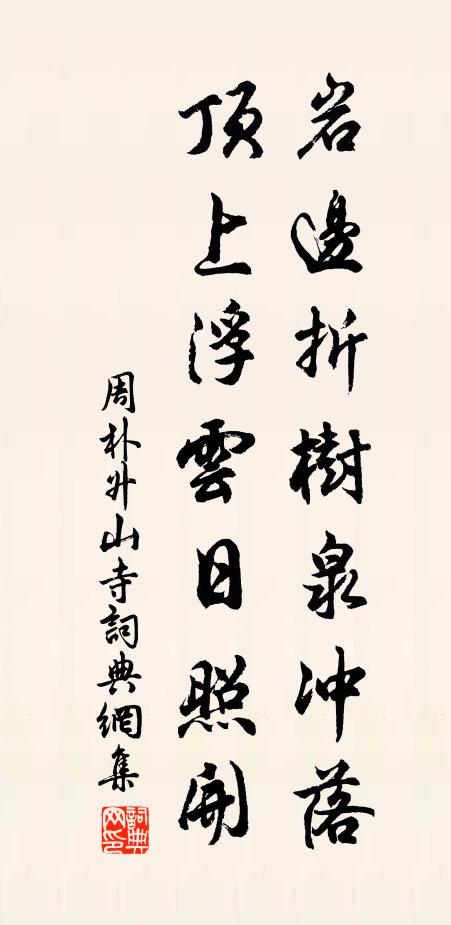 岩邊折樹泉冲落
頂上浮雲日照開
周朴升山寺詞典網集
詞典網印